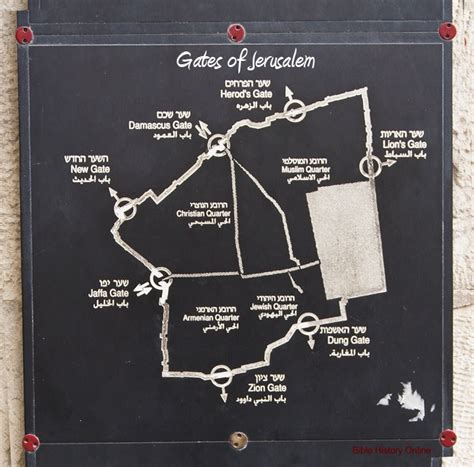 Gates of Jerusalem
שער הפרחים
Herod's Gate
باب الزهره
שער שכם
Damascus Gate
باب العمود
שער האריות
Lion's Gate
باب السباط
השער החדש
New Gate
باب الحديث
הרובע המוסלמי
Muslim Quarter
الحي الاسلامي
הרובע הנוצרי
Christian Quarter
الحي المسيحي
שער יפו
Jaffa Gate
باب الخليل
הרובע הארמני
Armenian Quarter
الحي الأرمني
הרובע היהודי
Jewish Quarter
الحي اليهودي
שער האשפות
Dung Gate
باب المغاربة
שער ציון
Zion Gate
باب النبي داوود
Bible History Online